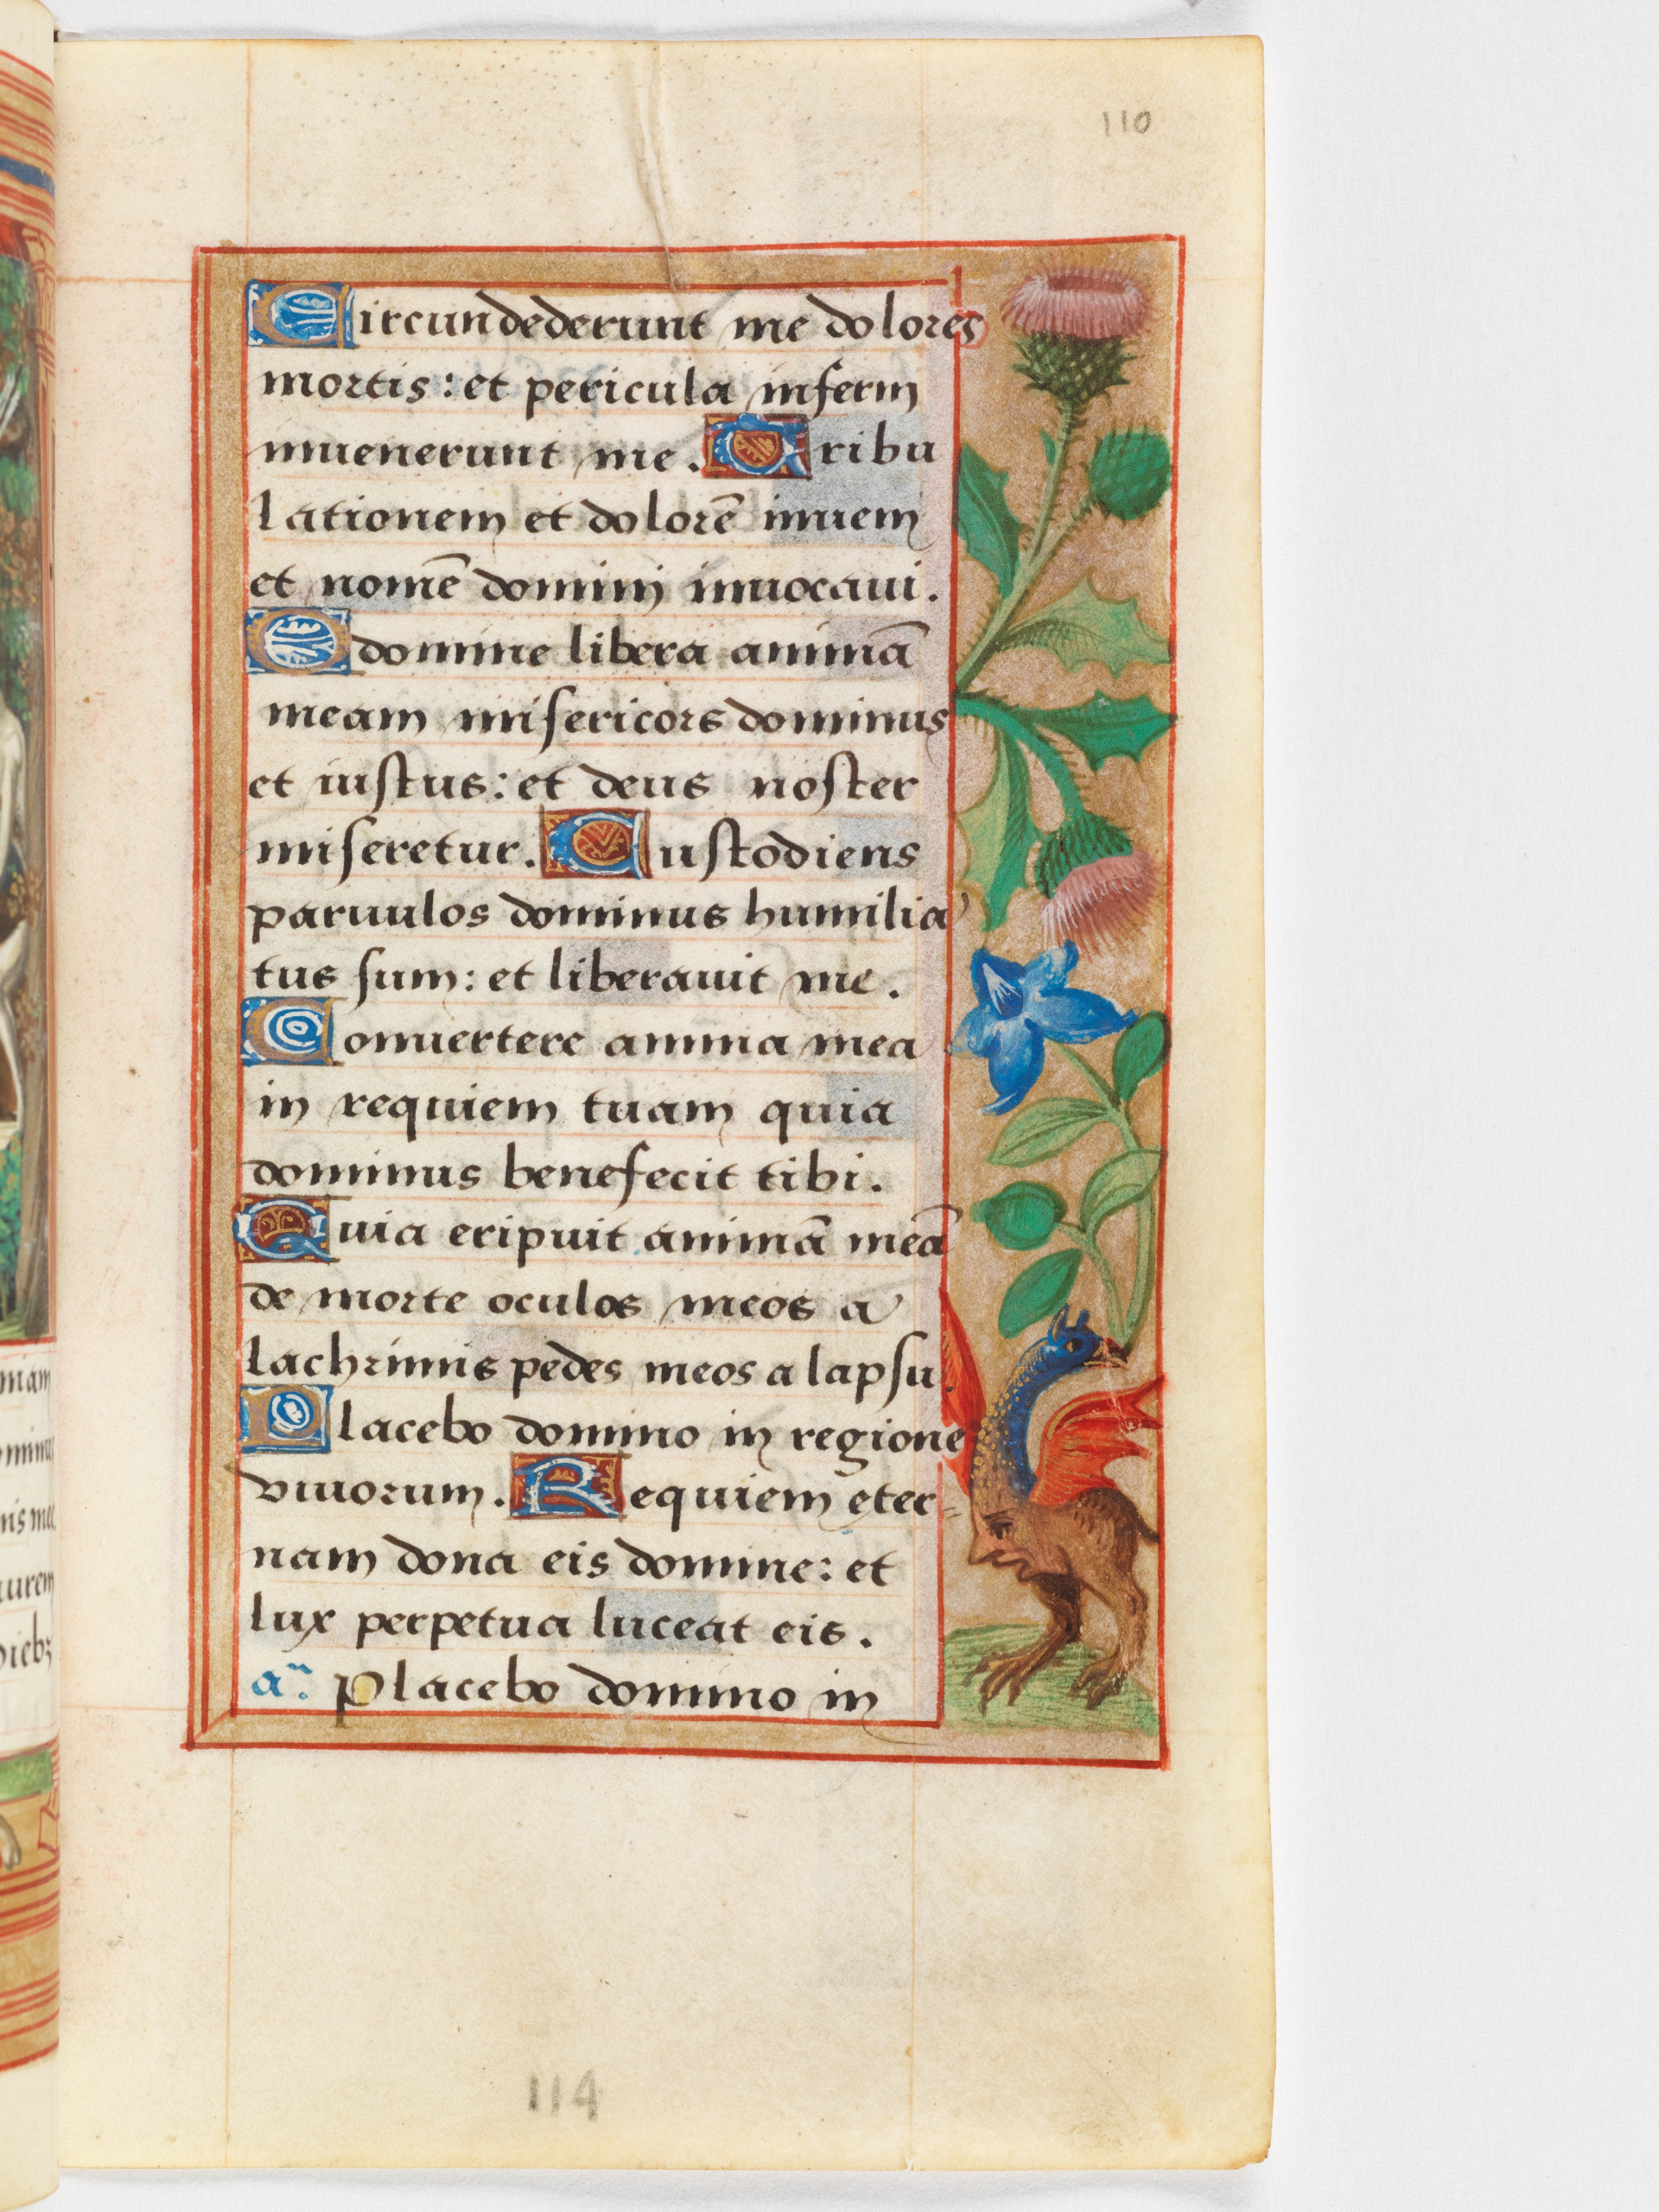 110
Circundederunt me dolores
mortis: et pericula inferni
inuenerunt me. Tribu
lationem et dolorē inueni
et nomē domini inuocaui.
O domine libera animā
meam misericors dominus
et iustus: et deus noster
miseretur. Custodiens
paruulos dominus humilia
tus sum: et liberauit me.
Conuertere anima mea
in requiem tuam quia
dominus benefecit tibi.
Quia eripuit animā meā
de morte oculos meos a
lachrimis pedes meos a lapsu.
Placebo domino in regione
viuorum. Requiem eter-
nam dona eis domine: et
lux perpetua luceat eis.
añ. Placebo domino in
114